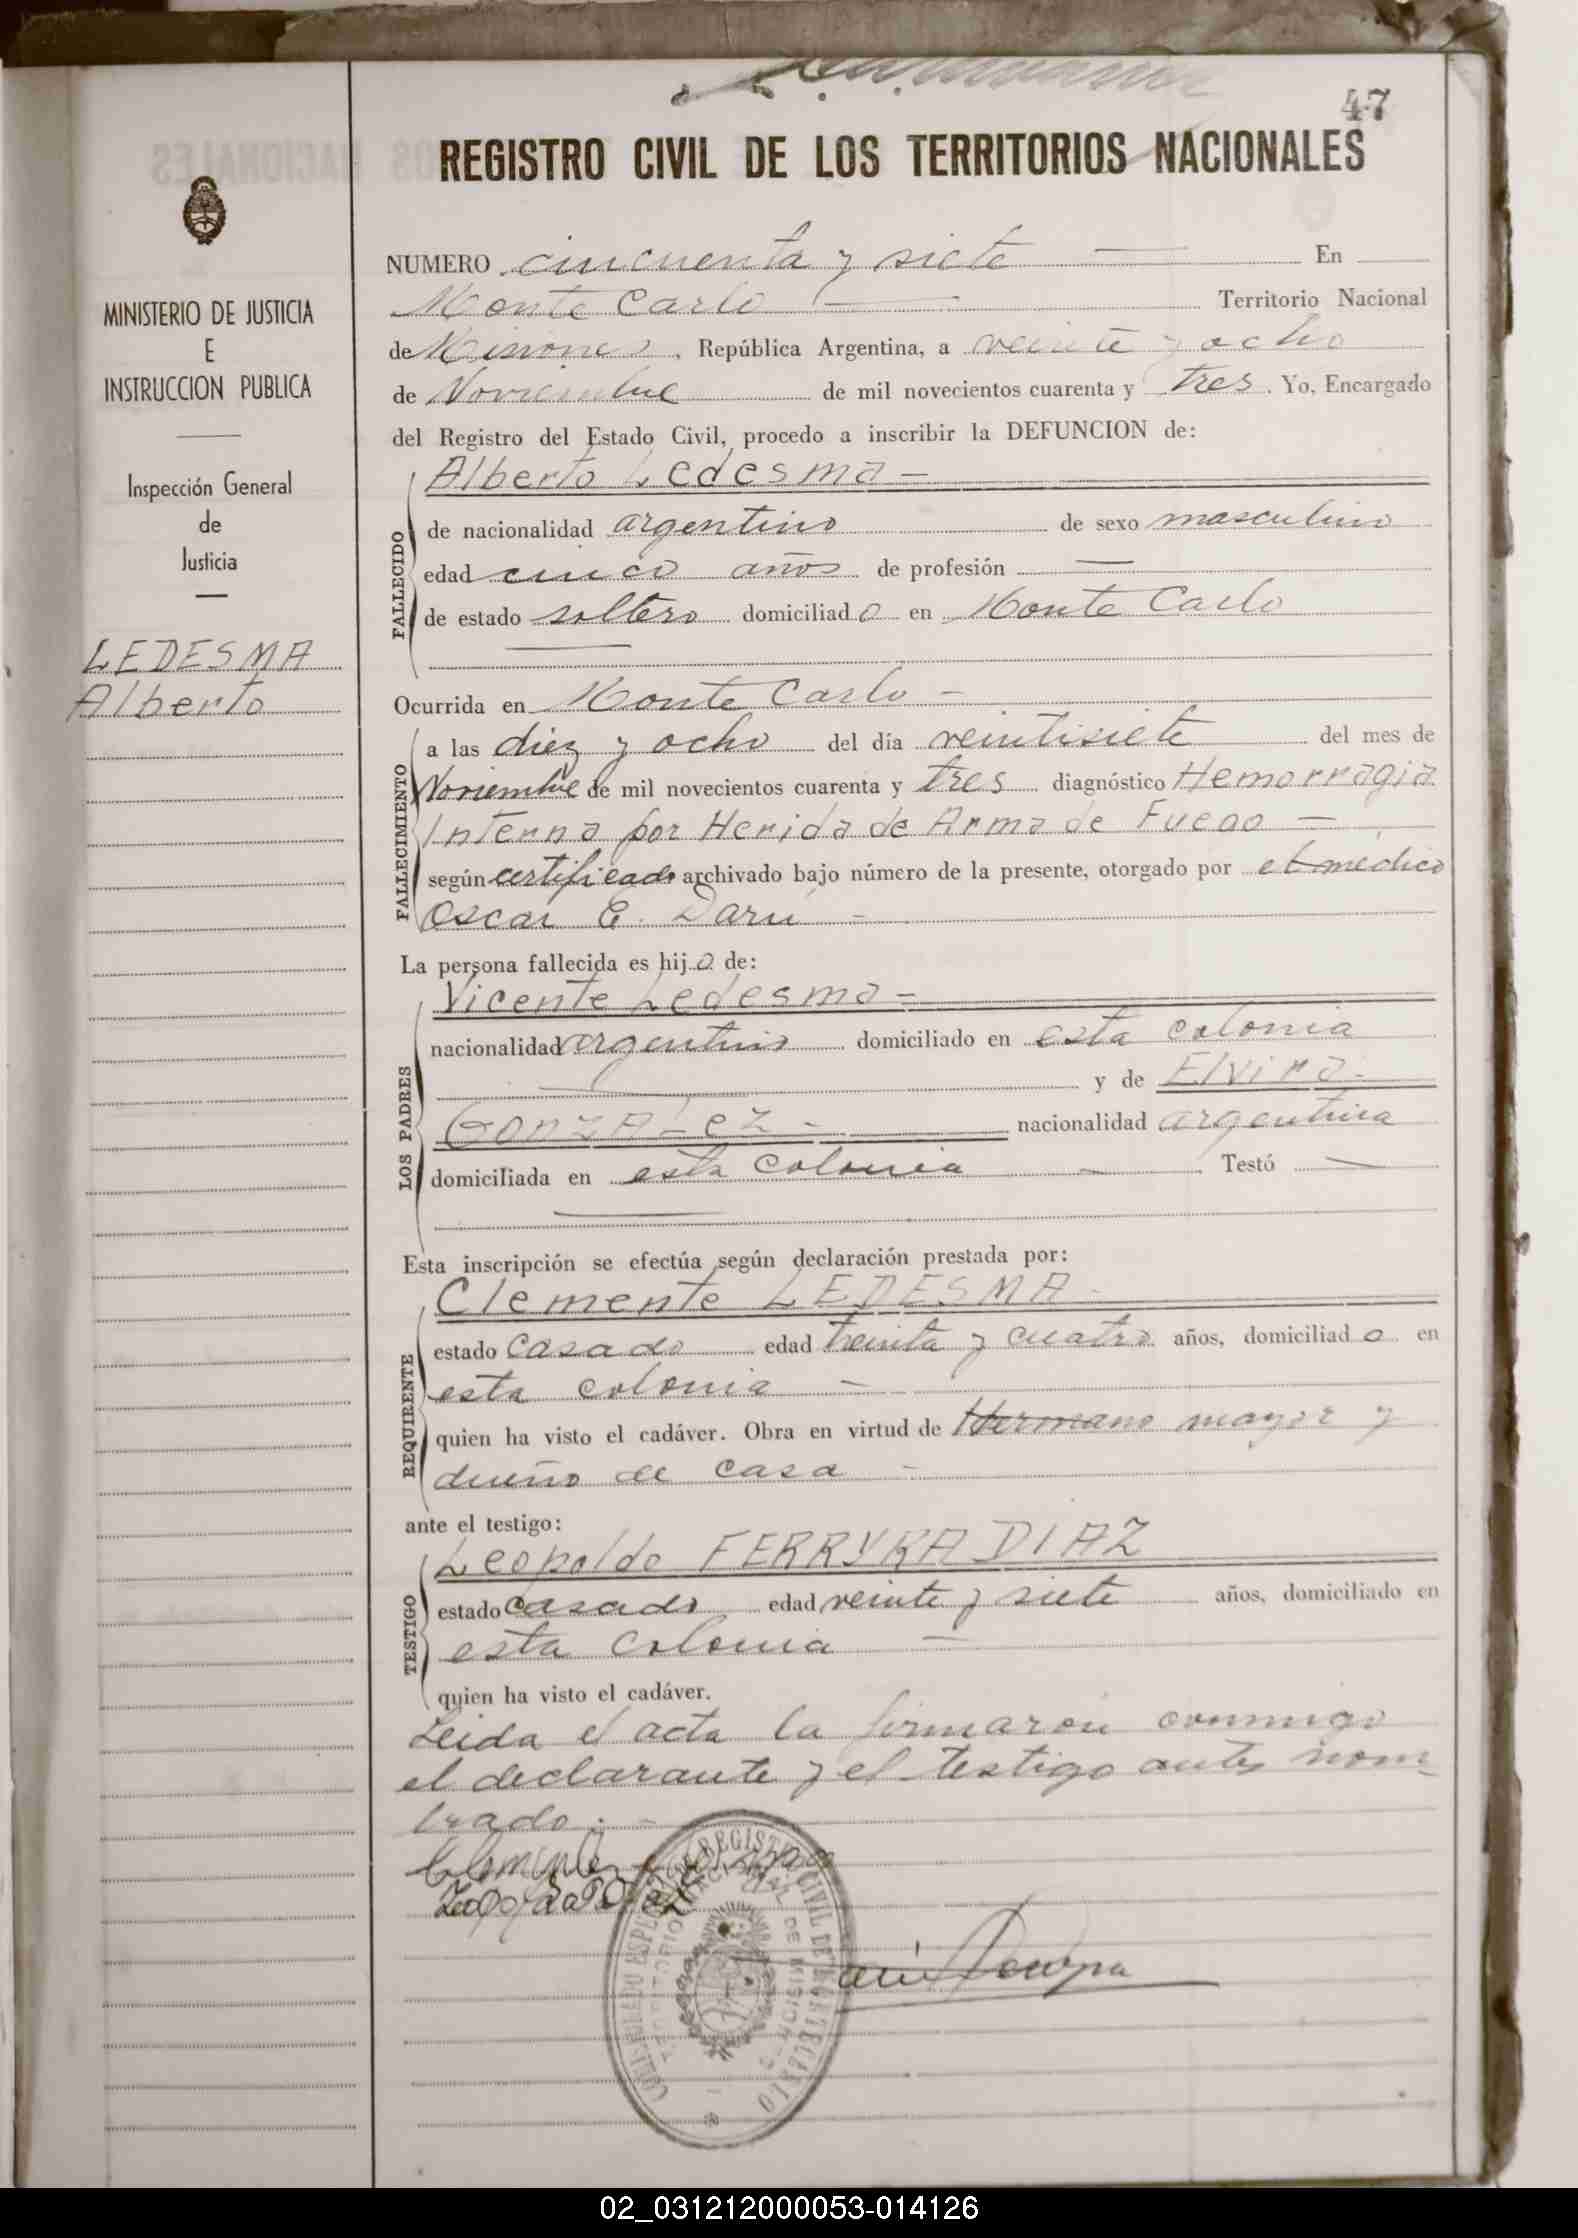 47
REGISTRO CIVIL DE LOS TERRITORIOS NACIONALES
MINISTERIO DE JUSTICIA
E
INSTRUCCION PUBLICA
Inspección General
de
Justicia
LEDESMA
Alberto
NUMERO cincuenta y siete — En
Monte Carlo — Territorio Nacional
de Misiones, República Argentina, a veinte y ocho
de Noviembre de mil novecientos cuarenta y tres. Yo, Encargado
del Registro del Estado Civil, procedo a inscribir la DEFUNCION de:
FALLECIDO
Alberto Ledesma —
de nacionalidad argentino de sexo masculino
edad cinco años de profesión —
de estado soltero domiciliado en Monte Carlo
Ocurrida en Monte Carlo —
FALLECIMIENTO
a las diez y ocho del día veintisiete del mes de
Noviembre de mil novecientos cuarenta y tres diagnóstico Hemorragia
Interna por Herida de Arma de Fuego —
según certificado archivado bajo número de la presente, otorgado por el médico
Oscar E. Darú —
La persona fallecida es hijo de:
LOS PADRES
Vicente Ledesma —
nacionalidad argentino domiciliado en esta colonia
y de Elvira
GONZALEZ — nacionalidad argentina
domiciliada en esta colonia — Testó —
Esta inscripción se efectúa según declaración prestada por:
REQUIRENTE
Clemente LEDESMA
estado casado edad treinta y cuatro años, domiciliado en
esta colonia —
quien ha visto el cadáver. Obra en virtud de Hermano mayor y
dueño de casa —
ante el testigo:
TESTIGO
Leopoldo FERRYRA DIAZ
estado casado edad veinte y siete años, domiciliado en
esta colonia —
quien ha visto el cadáver.
Leida el acta la firmaron conmigo
el declarante y el testigo antes nom
brado. —
Clemente
02_031212000053-014126